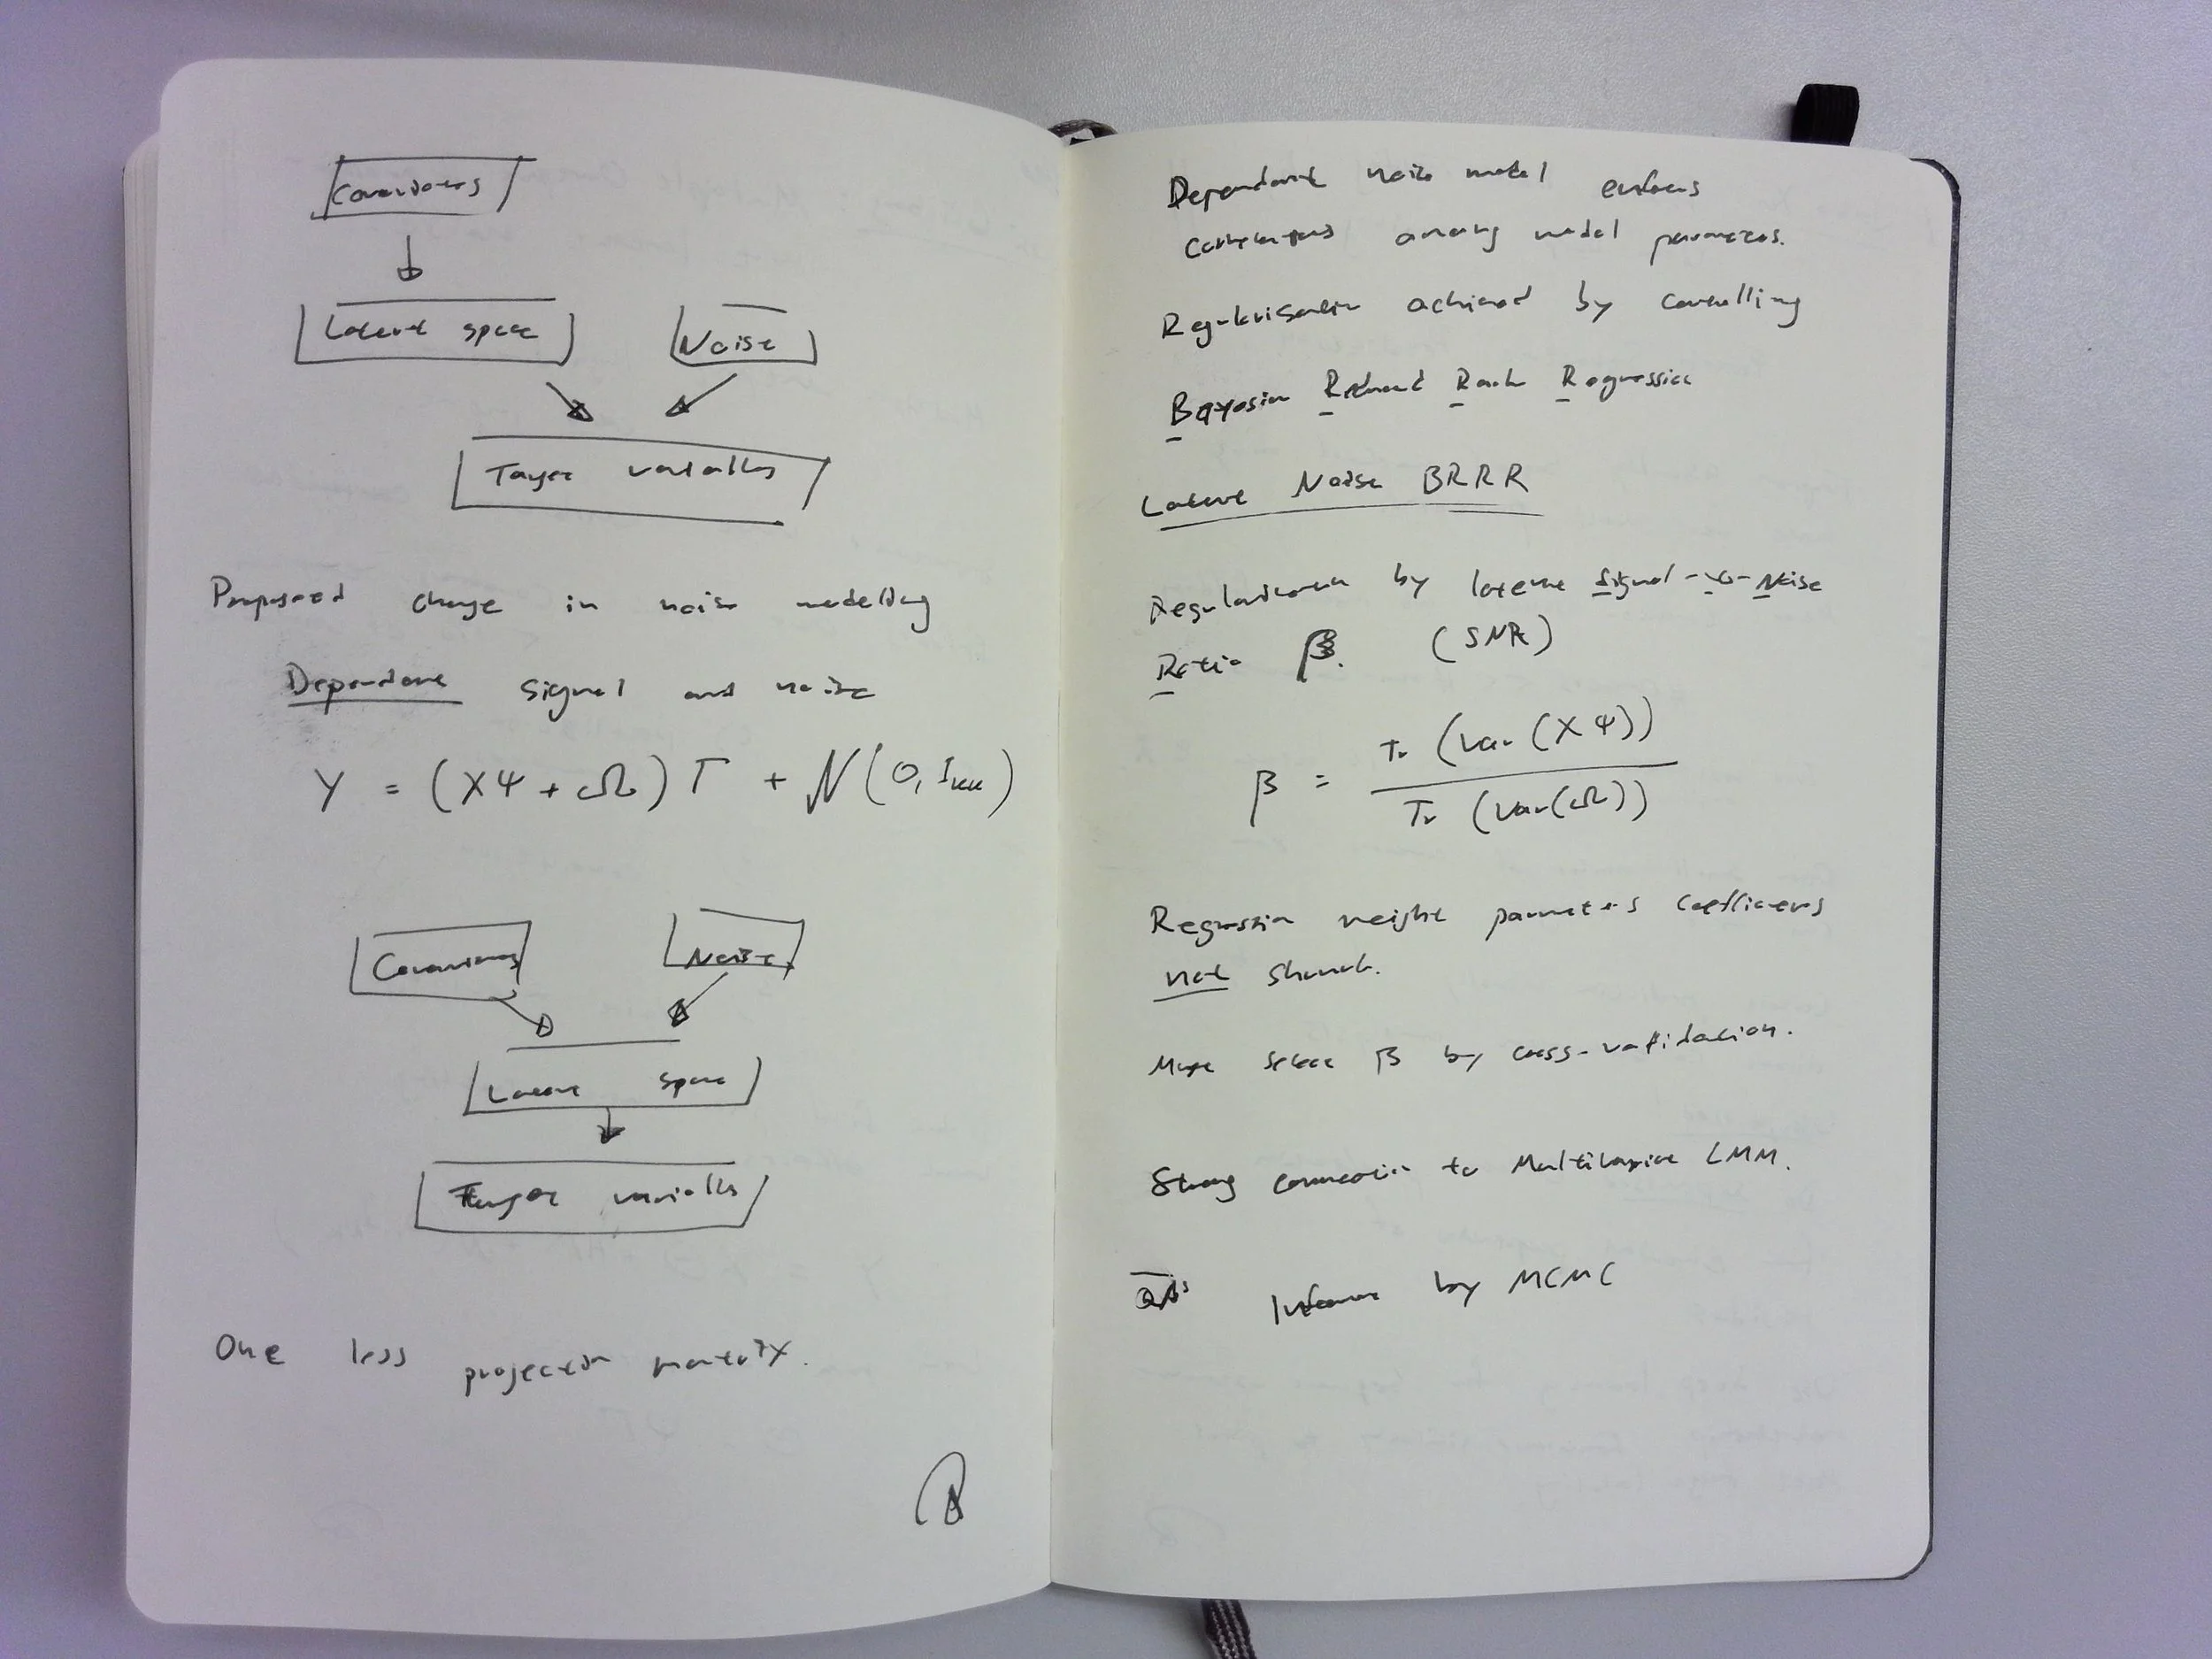 Covariates
Latent space
Noise
Target variables
Proposed change in noise modelling
Dependent signal and noise
Y = (XΨ + Ω) Γ + N(0, I_KK)
Covariates
Noise
Latent space
Target variables
One less projection matrix.
Dependent noise model enforces
correlations among model parameters.
Regularisation achieved by controlling
Bayesian Reduced Rank Regression
Latent Noise BRRR
Regularisation by latent Signal-to-Noise
Ratio β. (SNR)
β = Tr (Var (XΨ)) / Tr (Var(Ω))
Regression weight parameters coefficients
not shrunk.
Must select β by cross-validation.
Strong connection to Multivariate LMM.
Inference by MCMC